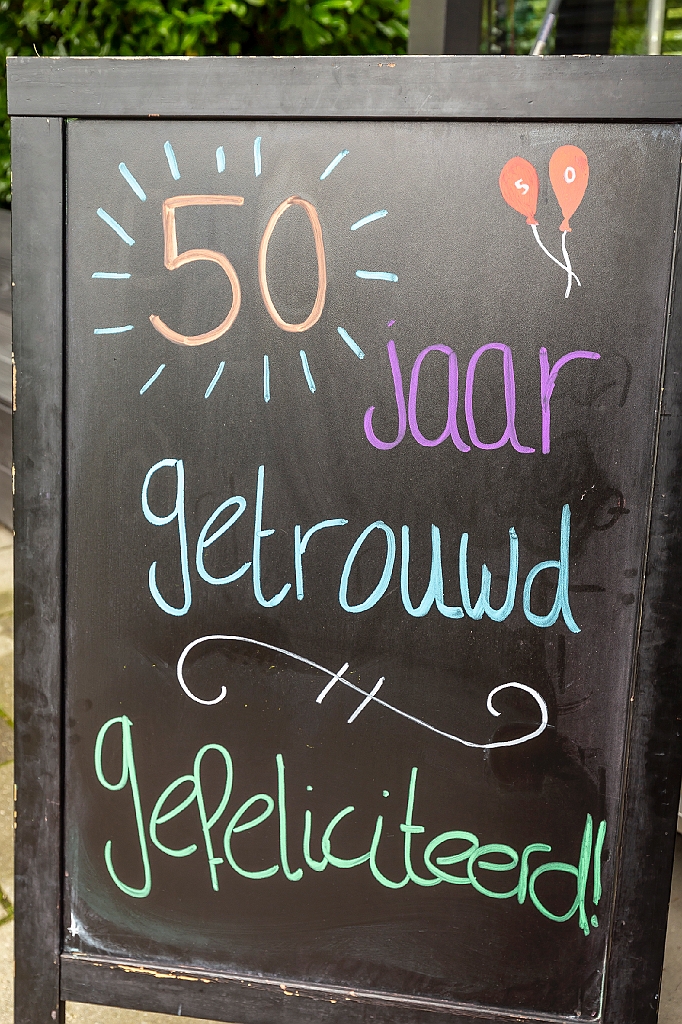 50
5 0
jaar
getrouwd
gefeliciteerd!